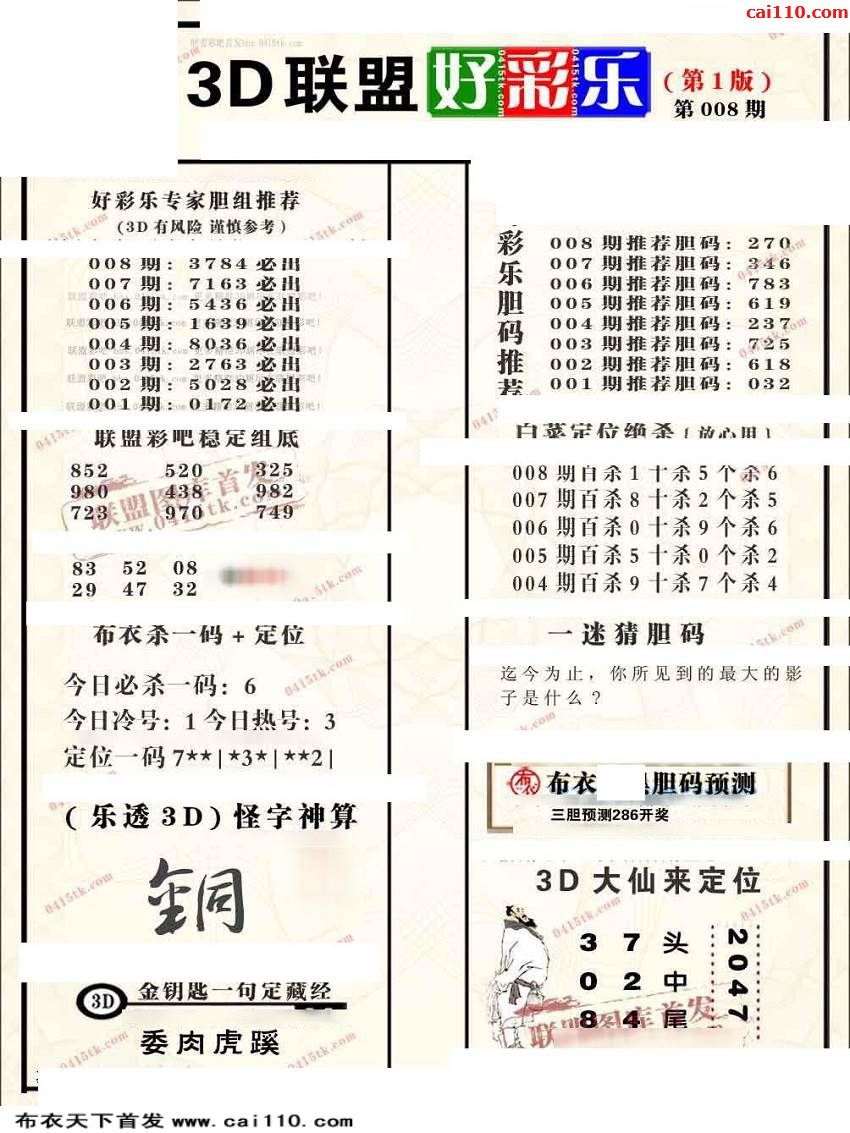 cai110.com
3D联盟好彩乐
(第1版)
第008期
好彩乐专家胆组推荐
(3D有风险 谨慎参考)
008期: 3784必出
007期: 7163必出
006期: 5436必出
005期: 1639必出
004期: 8036必出
003期: 2763必出
002期: 5028必出
001期: 0172必出
联盟彩吧稳定组底
852 520 325
980 438 982
723 970 749
83 52 08
29 47 32
布衣杀一码+定位
今日必杀一码: 6
今日冷号: 1 今日热号: 3
定位一码 7**|*3*|**2|
(乐透3D)怪字神算
銅
3D 金钥匙一句定藏经
委肉虎蹊
彩乐胆码推荐
008期推荐胆码: 270
007期推荐胆码: 346
006期推荐胆码: 783
005期推荐胆码: 619
004期推荐胆码: 237
003期推荐胆码: 725
002期推荐胆码: 618
001期推荐胆码: 032
白菜定位绝杀(放心用)
008期百杀1十杀5个杀6
007期百杀8十杀2个杀5
006期百杀0十杀9个杀6
005期百杀5十杀0个杀2
004期百杀9十杀7个杀4
一迷猜胆码
迄今为止，你所见到的最大的影
子是什么?
布衣 胆码预测
三胆预测286开奖
3D大仙来定位
3 7 头
0 2 中
8 4 尾
2047
联盟图库首发
www.0415tk.com
0415tk.com
布衣天下首发 www.cai110.com